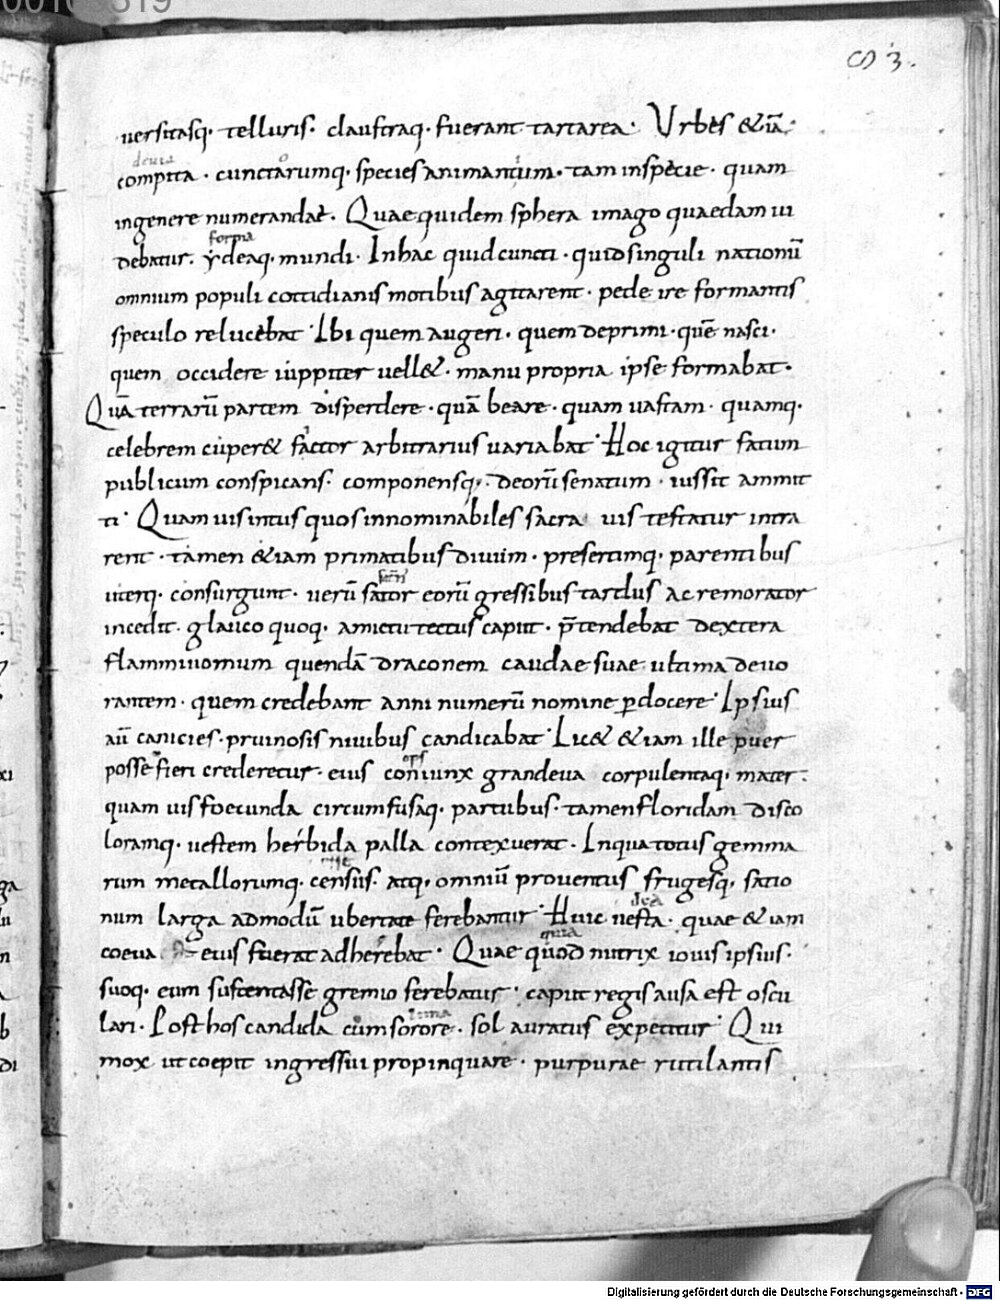 ꝏ 3.
uersitasq; telluris. claustraq; fuerant tartarea. Vrbes &iā.
deuia
compita. cunctarumq; species animantium. tam inspecie. quam
ingenere numerandae. Quae quidem sphera imago quaedam ui
forma
debatur. ydeaq; mundi. Inhac quid cuncti. quid singuli nationū
omnium populi cottidianis motibus agitarent. pede ire formantis
speculo relucebat. Ibi quem augeri. quem deprimi. quē nasci.
quem occidere iuppiter uell&. manu propria ipse formabat.
Quā terrarū partem disperdere. quā beare. quam uastam. quamq;
celebrem cuper& factor arbitrarius uariabat. Hoc igitur fatum
publicum conspicans. componensq; deorū senatum. iussit ammit
ti. Quam uis intus quos innominabiles sacra uis testatur intra
rent. tamen &iam primatibus diuum. presertimq; parentibus
uterq; consurgunt. uerū sator eorū gressibus tardus ac remorator
incedit. glauco quoq; amictu tectus caput. p̄tendebat dextera
flammiuomum quendā draconem caudae suae ultima deuo
rantem. quem credebant anni numerū nomine ꝑdocere. Ipsius
aū canicies. pruinosis niuibus candicabat. Lic& &iam ille puer
posse fieri crederetur. eius
ops
coniunx grandeua corpulentaq; mater.
quam uis foecunda circumfusaq; partubus. tamen floridam disco
loramq; uestem herbida palla contexuerat. Inqua totus gemma
rum metallorumq; census. atq; omniū prouentus frugesq; satio
num larga admodū ubertate ferebantur. Huic uesta. quae &iam
dea
coeua eius fuerat adherebat. Quae quod nutrix iouis ipsius.
quia
suoq; eum sustentasse gremio ferebatur. caput regis ausa est oscu
lari. Post hos candida cum sorore. sol auratus expetitur. Qui
luna
mox ut coepit ingressui propinquare. purpurae rutilantis
Digitalisierung gefördert durch die Deutsche Forschungsgemeinschaft - DFG